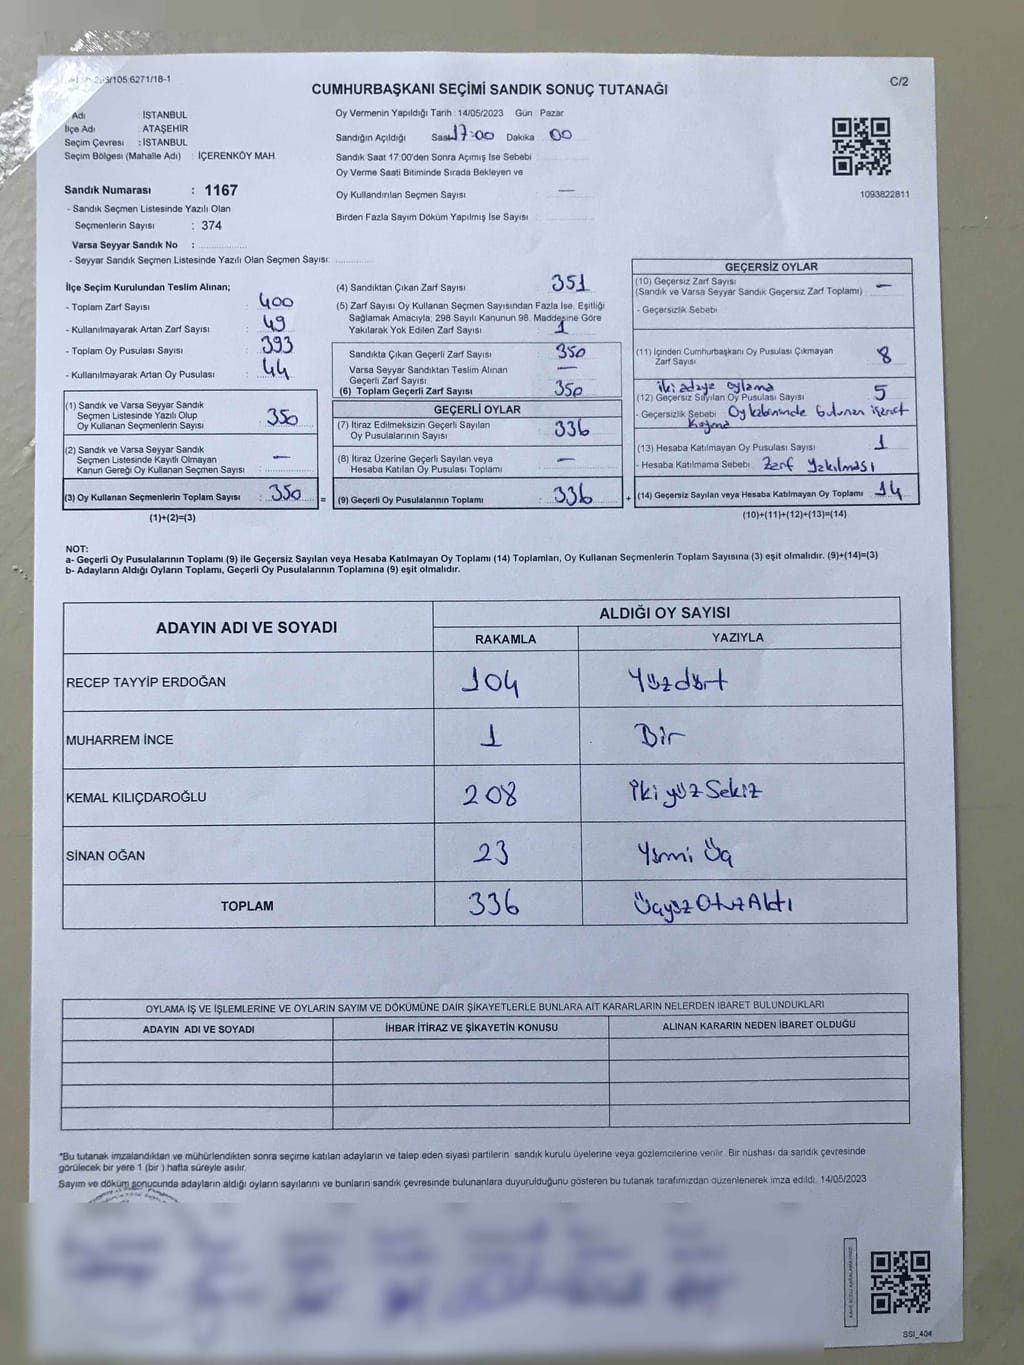 /105:6271/18-1
C/2
CUMHURBAŞKANI SEÇİMİ SANDIK SONUÇ TUTANAĞI
Adı : İSTANBUL
İlçe Adı : ATAŞEHİR
Seçim Çevresi : İSTANBUL
Seçim Bölgesi (Mahalle Adı) : İÇERENKÖY MAH
Sandık Numarası : 1167
- Sandık Seçmen Listesinde Yazılı Olan
Seçmenlerin Sayısı : 374
Varsa Seyyar Sandık No :
- Seyyar Sandık Seçmen Listesinde Yazılı Olan Seçmen Sayısı:
Oy Vermenin Yapıldığı Tarih : 14/05/2023 Gün : Pazar
Sandığın Açıldığı Saat 17:00 Dakika 00
Sandık Saat 17:00'den Sonra Açımış İse Sebebi :
Oy Verme Saati Bitiminde Sırada Bekleyen ve
Oy Kullandırılan Seçmen Sayısı : —
Birden Fazla Sayım Döküm Yapılmış İse Sayısı :
1093822811
İlçe Seçim Kurulundan Teslim Alınan;
- Toplam Zarf Sayısı : 400
- Kullanılmayarak Artan Zarf Sayısı : 49
- Toplam Oy Pusulası Sayısı : 393
- Kullanılmayarak Artan Oy Pusulası : 44
(1) Sandık ve Varsa Seyyar Sandık
Seçmen Listesinde Yazılı Olup
Oy Kullanan Seçmenlerin Sayısı : 350
(2) Sandık ve Varsa Seyyar Sandık
Seçmen Listesinde Kayıtlı Olmayan
Kanun Gereği Oy Kullanan Seçmen Sayısı : —
(3) Oy Kullanan Seçmenlerin Toplam Sayısı : 350 =
(1)+(2)=(3)
(4) Sandıktan Çıkan Zarf Sayısı : 351
(5) Zarf Sayısı Oy Kullanan Seçmen Sayısından Fazla İse, Eşitliği
Sağlamak Amacıyla; 298 Sayılı Kanunun 98. Maddesine Göre
Yakılarak Yok Edilen Zarf Sayısı : 1
Sandıkta Çıkan Geçerli Zarf Sayısı : 350
Varsa Seyyar Sandıktan Teslim Alınan
Geçerli Zarf Sayısı : —
(6) Toplam Geçerli Zarf Sayısı : 350
GEÇERLİ OYLAR
(7) İtiraz Edilmeksizin Geçerli Sayılan
Oy Pusulalarının Sayısı : 336
(8) İtiraz Üzerine Geçerli Sayılan veya
Hesaba Katılan Oy Pusulası Toplamı : —
(9) Geçerli Oy Pusulalarının Toplamı : 336 +
GEÇERSİZ OYLAR
(10) Geçersiz Zarf Sayısı
(Sandık ve Varsa Seyyar Sandık Geçersiz Zarf Toplamı) : —
- Geçersizlik Sebebi
(11) İçinden Cumhurbaşkanı Oy Pusulası Çıkmayan
Zarf Sayısı : 8
iki adaya oylama
(12) Geçersiz Sayılan Oy Pusulası Sayısı : 5
- Geçersizlik Sebebi Oy kabininde bulunan işaret
koyma
(13) Hesaba Katılmayan Oy Pusulası Sayısı : 1
- Hesaba Katılmama Sebebi Zarf Yakılması
(14) Geçersiz Sayılan veya Hesaba Katılmayan Oy Toplamı : 14
(10)+(11)+(12)+(13)=(14)
NOT:
a- Geçerli Oy Pusulalarının Toplamı (9) ile Geçersiz Sayılan veya Hesaba Katılmayan Oy Toplamı (14) Toplamları, Oy Kullanan Seçmenlerin Toplam Sayısına (3) eşit olmalıdır. (9)+(14)=(3)
b- Adayların Aldığı Oyların Toplamı, Geçerli Oy Pusulalarının Toplamına (9) eşit olmalıdır.
ADAYIN ADI VE SOYADI
ALDIĞI OY SAYISI
RAKAMLA YAZIYLA
RECEP TAYYİP ERDOĞAN 104 Yüzdört
MUHARREM İNCE 1 Bir
KEMAL KILIÇDAROĞLU 208 İkiyüz Sekiz
SİNAN OĞAN 23 Yirmi Üç
TOPLAM 336 Üçyüz Otuz Altı
OYLAMA İŞ VE İŞLEMLERİNE VE OYLARIN SAYIM VE DÖKÜMÜNE DAİR ŞİKAYETLERLE BUNLARA AİT KARARLARIN NELERDEN İBARET BULUNDUKLARI
ADAYIN ADI VE SOYADI İHBAR İTİRAZ VE ŞİKAYETİN KONUSU ALINAN KARARIN NEDEN İBARET OLDUĞU
*Bu tutanak imzalandıktan ve mühürlendikten sonra seçime katılan adayların ve talep eden siyasi partilerin sandık kurulu üyelerine veya gözlemcilerine verilir. Bir nüshası da sandık çevresinde
görülecek bir yere 1 (bir ) hafta süreyle asılır.
Sayım ve döküm sonucunda adayların aldığı oyların sayılarını ve bunların sandık çevresinde bulunanlara duyurulduğunu gösteren bu tutanak tarafımızdan düzenlenerek imza edildi. 14/05/2023
SSI_404